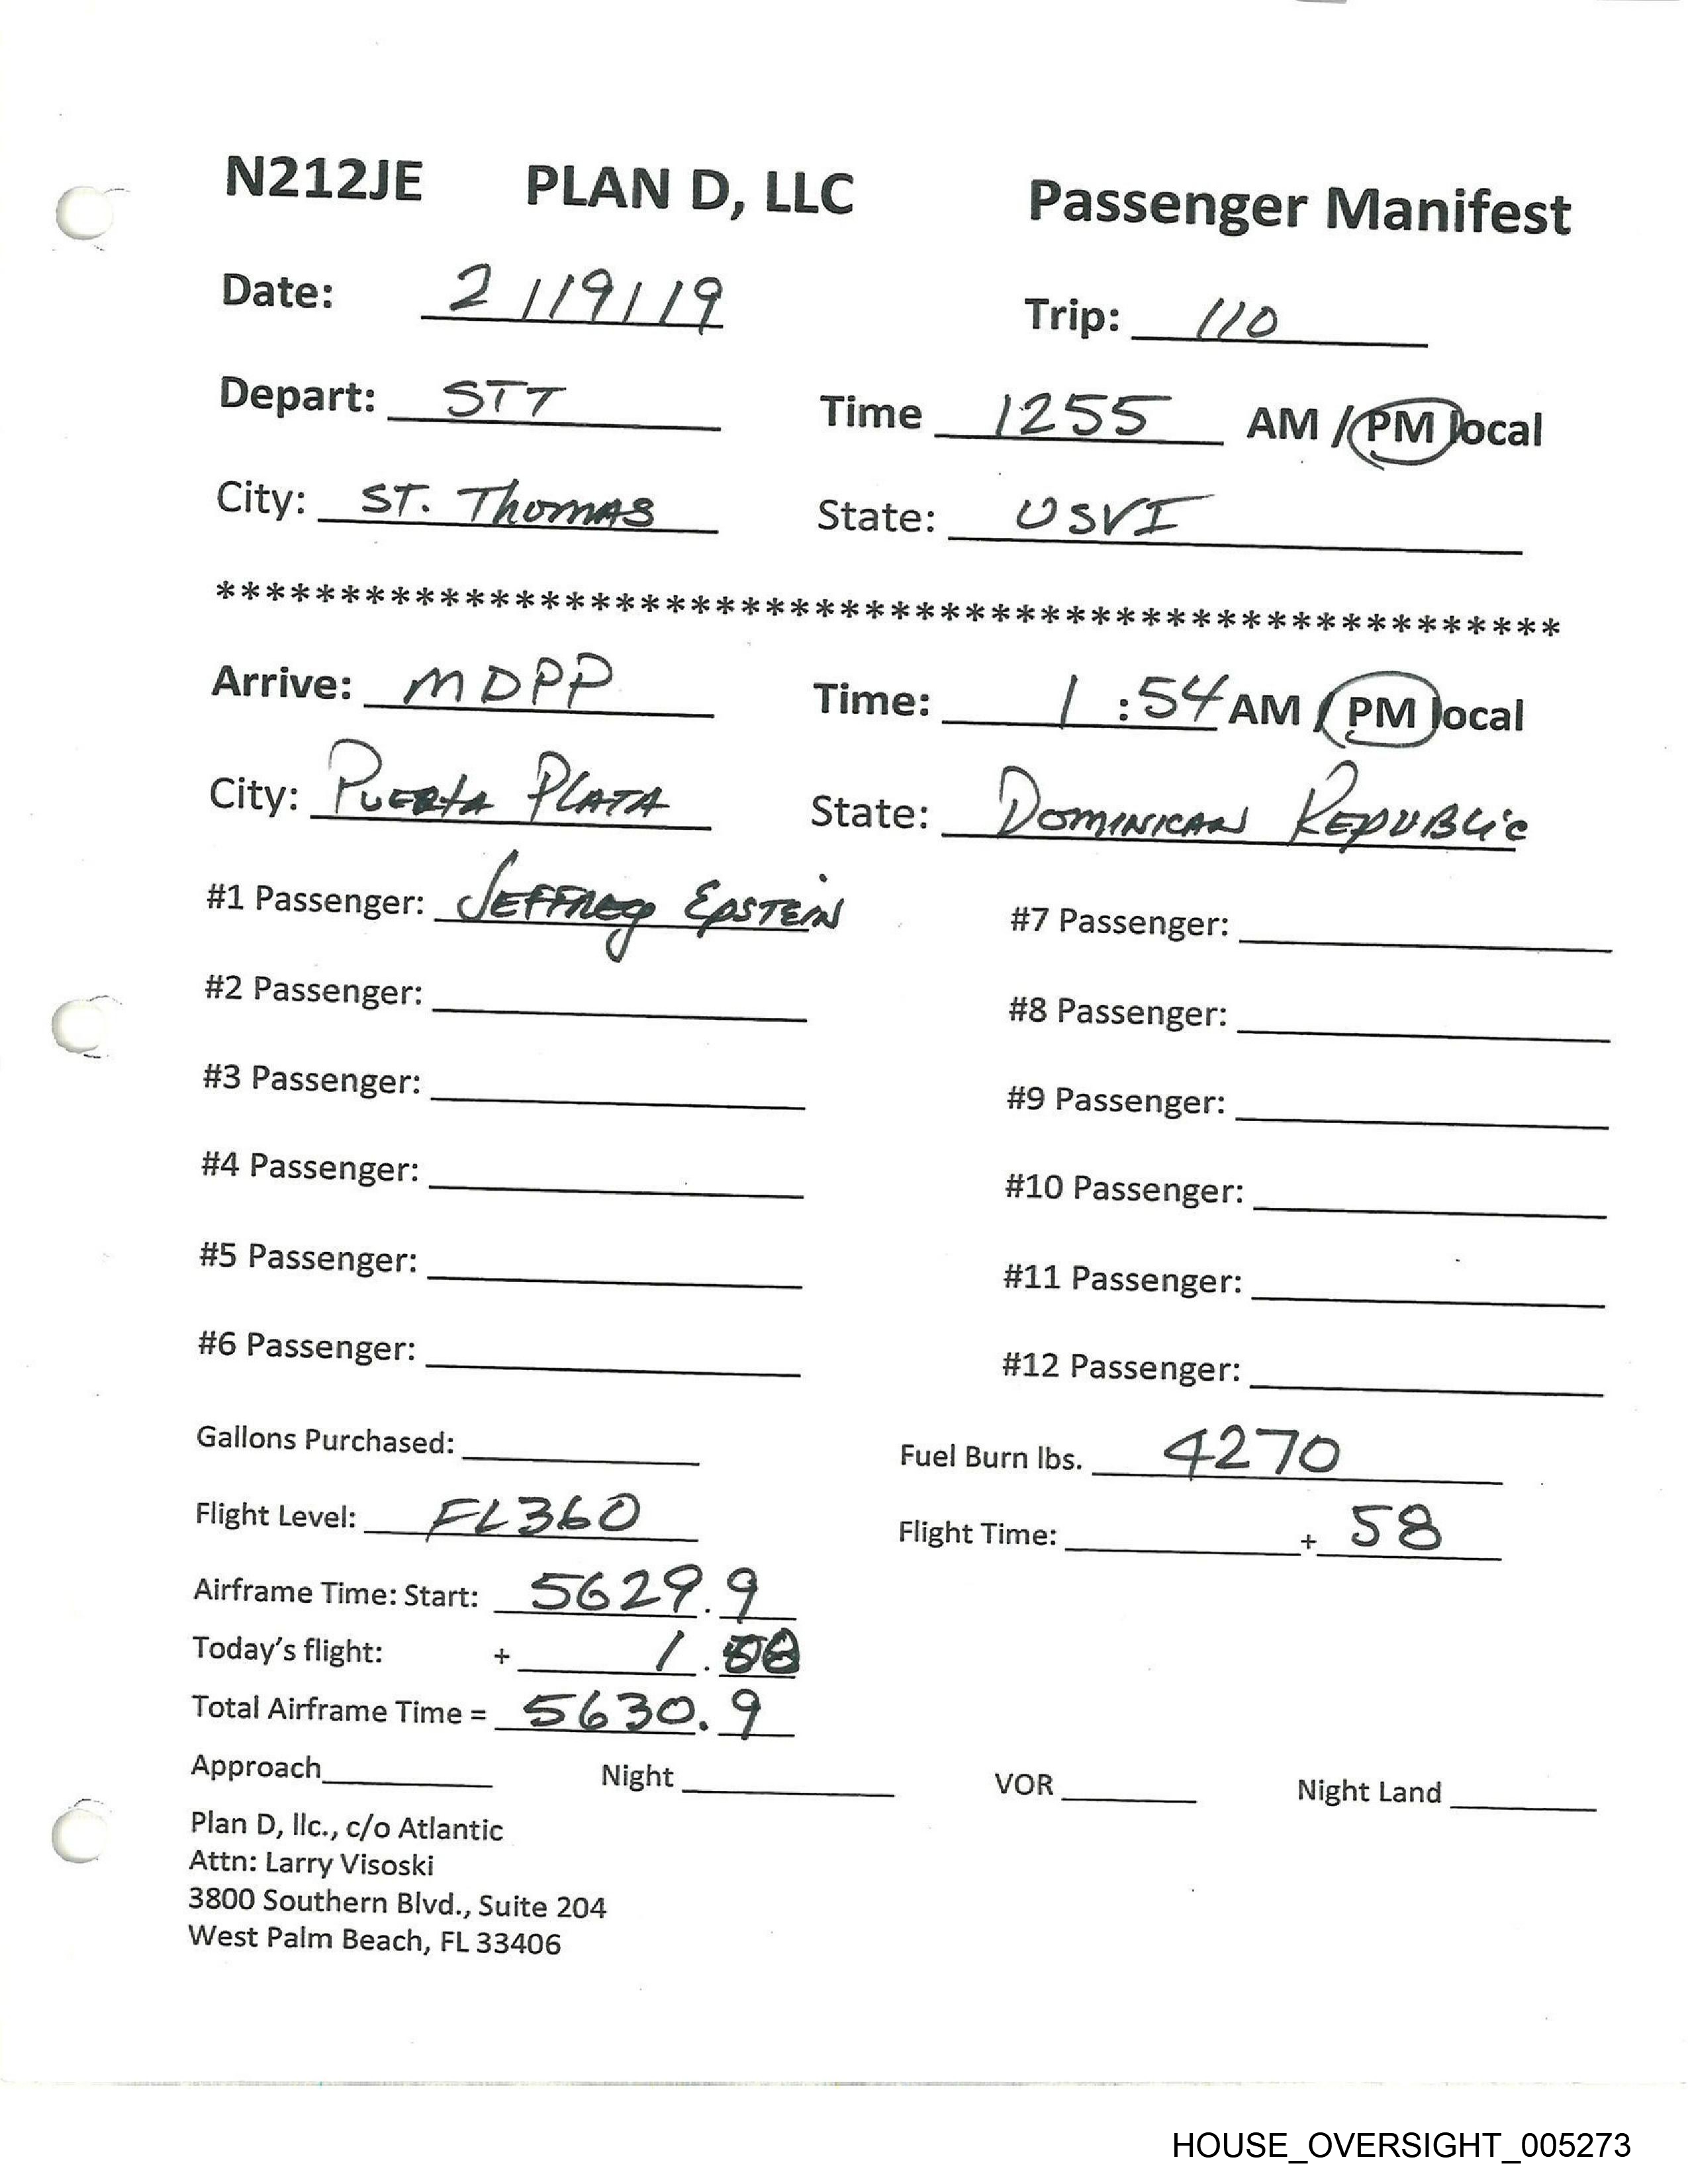 N212JE PLAN D, LLC Passenger Manifest
Date: 2/19/19 Trip: 110
Depart: STT Time 1255 AM / PM local
City: ST. Thomas State: USVI
*******************************************************
Arrive: MDPP Time: 1:54 AM / PM local
City: Puerta Plata State: Dominican Republic
#1 Passenger: Jeffrey Epstein #7 Passenger:
#2 Passenger: #8 Passenger:
#3 Passenger: #9 Passenger:
#4 Passenger: #10 Passenger:
#5 Passenger: #11 Passenger:
#6 Passenger: #12 Passenger:
Gallons Purchased: Fuel Burn lbs. 4270
Flight Level: FL360 Flight Time: + 58
Airframe Time: Start: 5629.9
Today's flight: + 1.
Total Airframe Time = 5630.9
Approach Night VOR Night Land
Plan D, llc., c/o Atlantic
Attn: Larry Visoski
3800 Southern Blvd., Suite 204
West Palm Beach, FL 33406
HOUSE_OVERSIGHT_005273